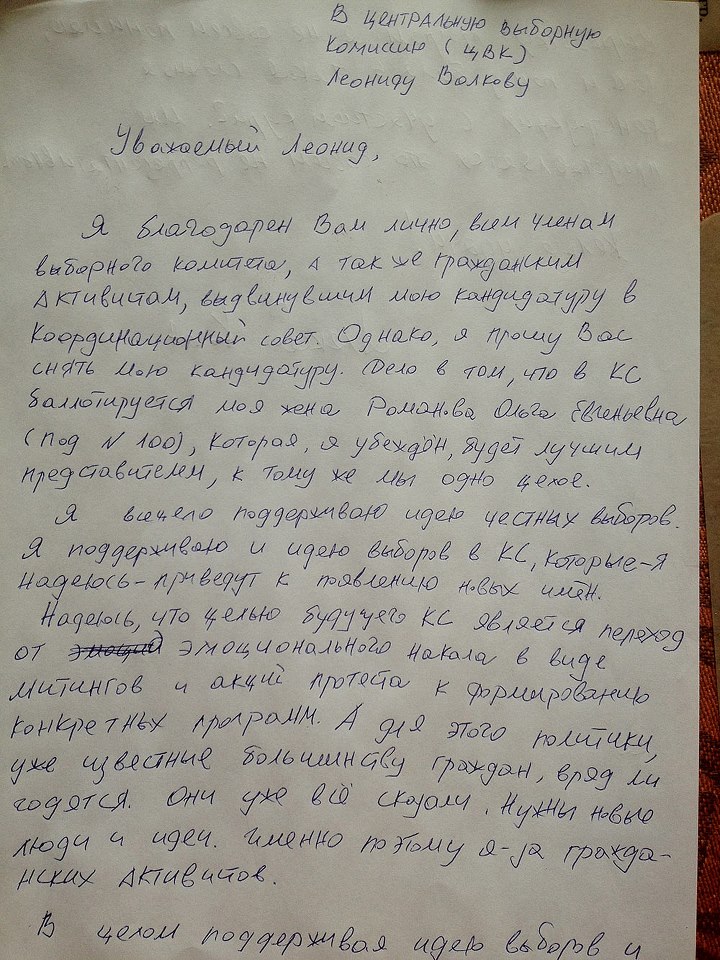 В центральную выборную
комиссию (ЦВК)
Леониду Волкову
Уважаемый Леонид,
Я благодарен Вам лично, всем членам
выборного комитета, а так же гражданским
активистам, выдвинувшим мою кандидатуру в
Координационный совет. Однако, я прошу Вас
снять мою кандидатуру. Дело в том, что в КС
баллотируется моя жена Романова Ольга Евгеньевна
(под N 100), которая, я убеждён, будет лучшим
представителем, к тому же мы одно целое.
Я всецело поддерживаю идею честных выборов.
Я поддерживаю и идею выборов в КС, которые-я
надеюсь-приведут к появлению новых имён.
Надеюсь, что целью будущего КС является переход
от эмоций эмоционального накала в виде
митингов и акций протеста к формированию
конкретных программ. А для этого политики,
уже известные большинству граждан, вряд ли
годятся. Они уже всё сказали. Нужны новые
люди и идеи. Именно поэтому я-за гражда-
нских активистов.
В целом поддерживая идею выборов и